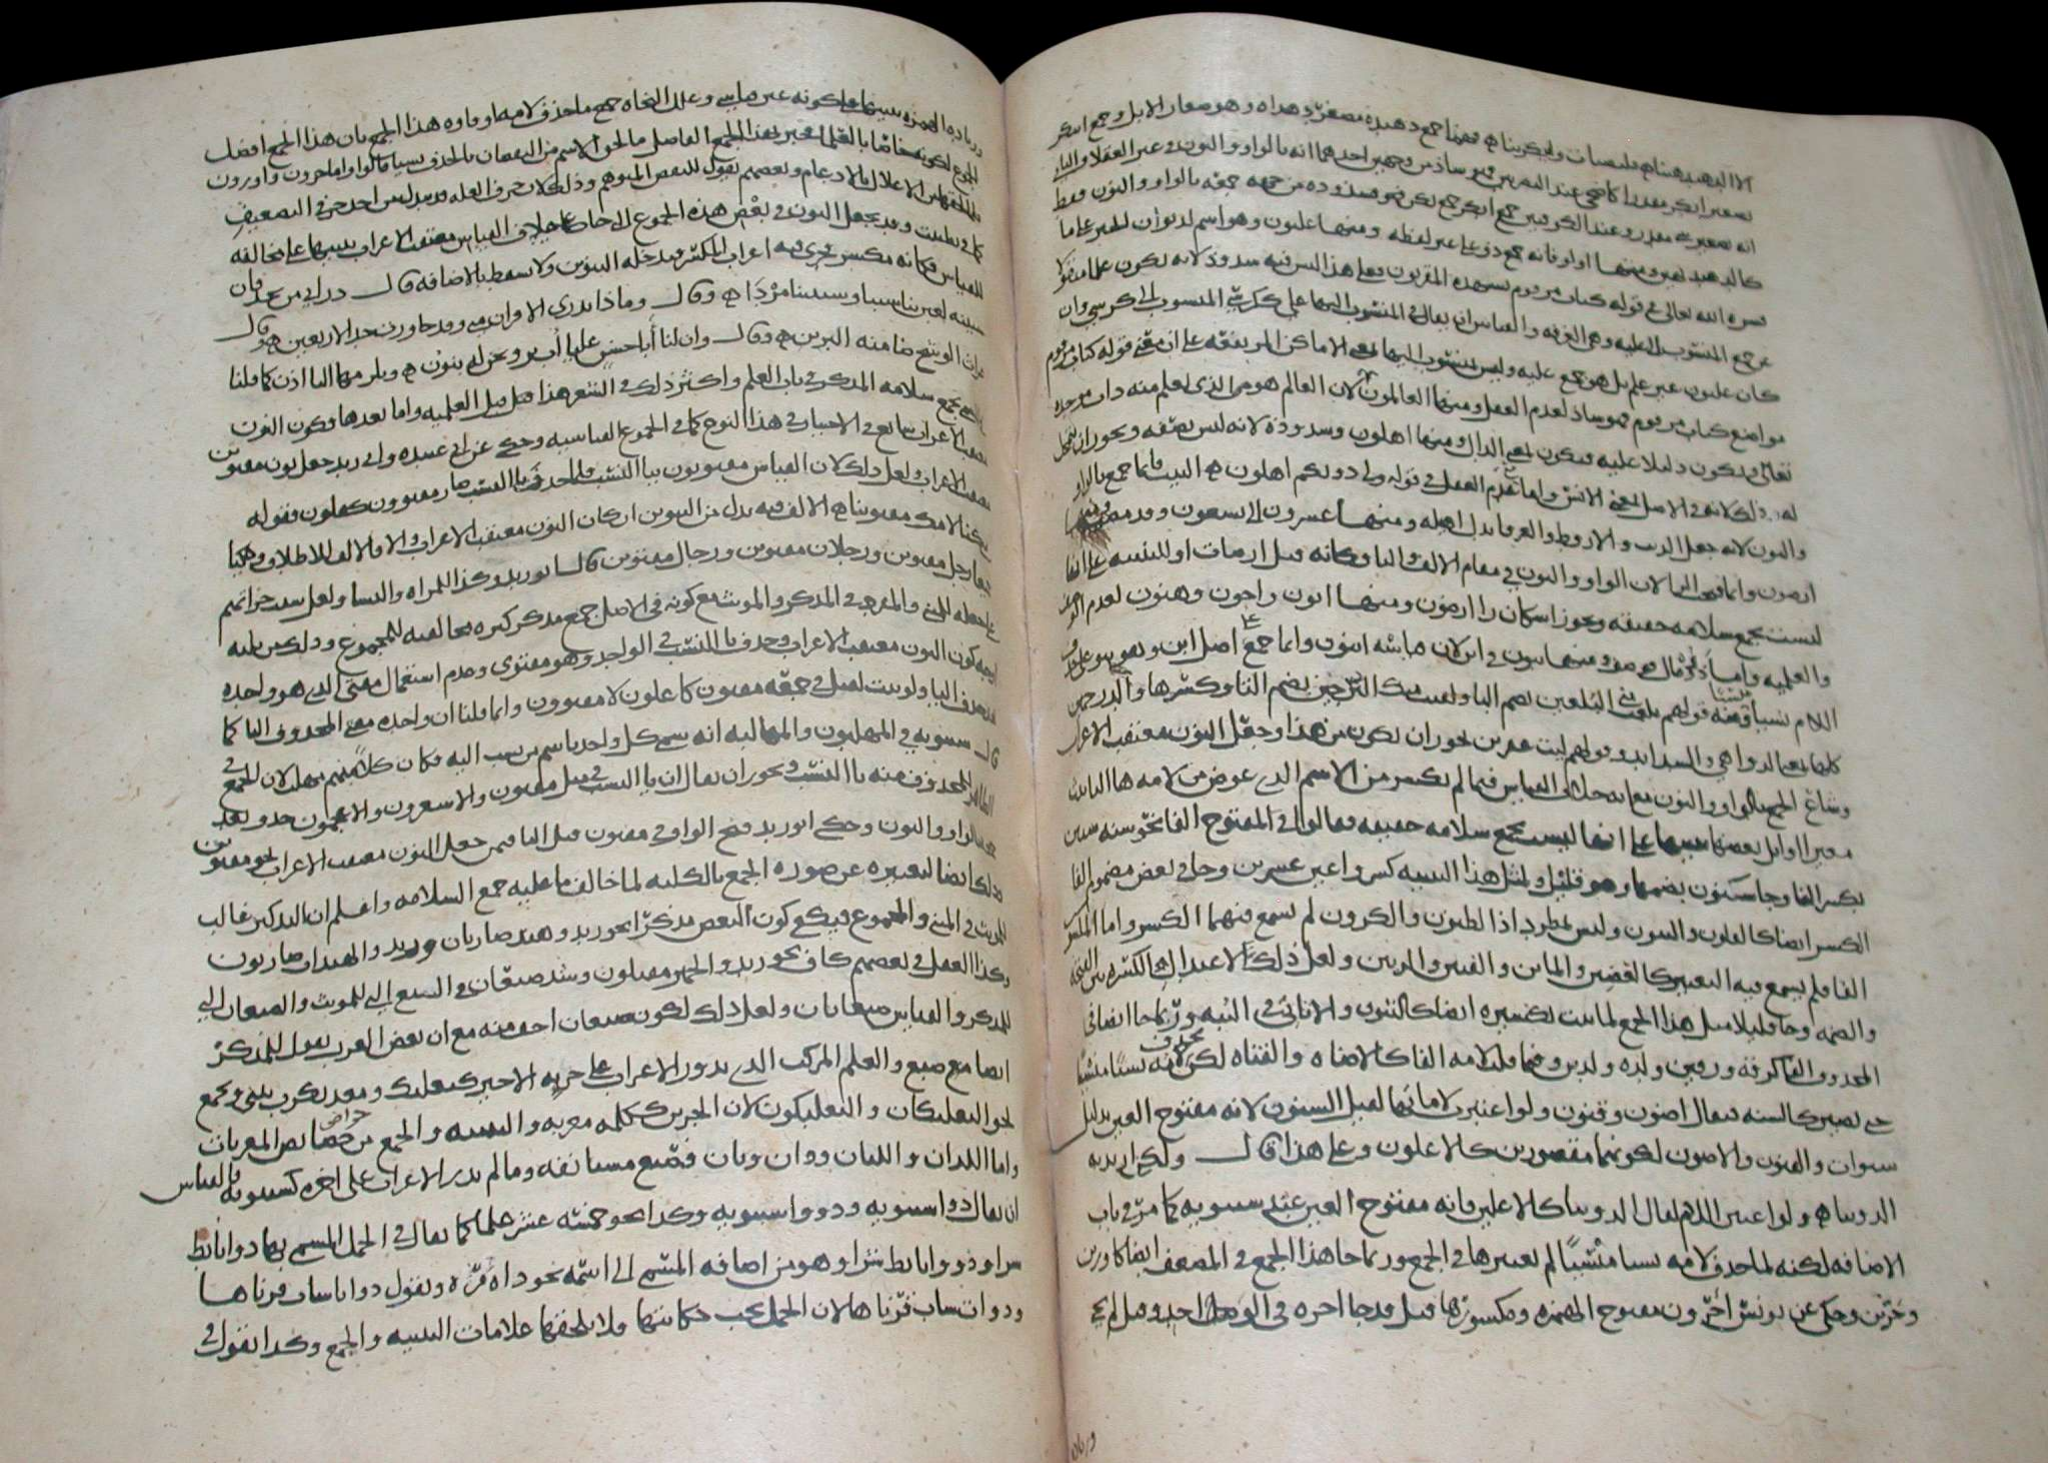 الا الدهيدهينا قليصات وابيكرينا فهما جمع دهيده مصغر دهداه وهو صغار الابل وجمع ابيكر
تصغير ابكر مقدرا كاضحى عند البصريين فهو شاذ من وجهين احدهما انه بالواو والنون في غير العقلا والثاني
انه تصغير مقدر وعند الكوفيين جمع ابيكر جمع بكر فهو شذوذه من جهة جمعه بالواو والنون فقط
كالدهيدهين ومنها اولو فانه جمع ذو على غير لفظه ومنها عليون وهو اسم لديوان الخير على ما
فسره الله تعالى في قوله كتاب مرقوم يشهده المقربون فعلى هذا ليس فيه شذوذ لانه يكون علما منقولا
عن جمع المنسوب الى عليه وهي الغرفه والقياس ان يقال في المنسوب اليها علي ككرسي المنسوب الى كرسي وان
كان عليون غير علم بل هو جمع عليه وليس بمنسوب اليها بمعنى الاماكن المرتفعه على ان معنى قوله كتاب مرقوم
مواضع كتاب مرقوم فهو شاذ لعدم العقل ومنها العالمون لان العالم هو الذي يعلم منه ذات موجده
تعالى ويكون دليلا عليه فيكون بمعنى الدال ومنها اهلون وشذوذه لانه ليس بصفه ويجوز ان يتمحل
له ذلك لانه في الاصل بمعنى الانس واما عدم العقل في قوله ولي دونكم اهلون البيت فانما جمع بالواو
والنون لانه جعل الذيب والارقط والعرفا بدل اهله ومنها عشرون الى تسعون وقد مضى ومنها
ارضون وانما فتحت الرا لان الواو والنون في مقام الالف والتا فكانه قيل ارضات او للتنبيه على انها
ليست بجمع سلامه حقيقه ويجوز اسكان را ارضون ومنها ابون واخون وهنون لعدم الوصف
والعلميه واما ذو مال فهو صفه ومنها بنون في ابن لان قياسه ابنون وانما جمع على اصل ابن وهو بنو على حذف
اللام نسيا منسيا ومنه قولهم بلغت مني البلغين بضم البا ولقيت منك البرحين بضم الفا وكسرها والدرخمين
كلها بمعنى الدواهي والشدايد وقولهم ليت عفرين يجوز ان يكون من هذا وجعل النون معتقب الاعراب
وشاع الجمع بالواو والنون مع انه خلاف القياس فيما لم يكسر من الاسم الذي عوض من لامه ها التانيث
مغيرا اوايل بعضها تنبيها على انها ليست بجمع سلامه حقيقه فقالوا في المفتوح الفا نحو سنه سنين
بكسر الفا وجا سنون بضمها وهو قليل ولمثل هذا التنبيه كسروا عين عشرين وجا في بعض مضموم الفا
الكسر ايضا كالقلون والثبون وليس بمطرد اذ الظبون والكرون لم يسمع فيهما الكسر واما المكسور
الفا فلم يسمع فيه التغيير كالعضين والمائين والفئين والرئين ولعل ذلك لاعتدال الكسره بين الفتحه
والضمه وجا قليلا مثل هذا الجمع لما ثبت تكسيره ايضا كالثبون والاثابي في الثبه وربما جا ايضا في
المحذوف الفا كرقه ورقين ولده ولدين وفيما قلبت لامه الفا كالاضاه والقناه لكن تحذف لامه نسيا منسيا
حتى تصير كالسنه فيقال اضون وقنون ولو اعتبرت لاماتها لقيل السنون لانه مفتوح العين بدليل
سنوات والقنون والاضون لكونهما مقصورين كالاعلون وعلى هذا قال ولكني اريد به
الذوينا ولو اعتبر اللام لقال الذوينا كالاعلين فانه مفتوح العين عند سيبويه كما مر في باب
الاضافه لكنه لما حذف لامه نسيا منسيا لم تعتبرها في الجمع وربما جا هذا الجمع في المضعف ايضا كاوزين
وحرين وحكي عن يونس احرون مفتوح الهمزه ومكسورها قيل قد جا احره في الواحد وقيل لم يجئ
وزياده الهمزه تنبيها على كونه غير قياسي وعلل النحاه جمع ما حذف لامه او فاوه هذا الجمع بان هذا الجمع افضل
الجموع لكونه خاصا بالعلما فجبر بهذا الجمع الفاضل ما لحق الاسم من النقصان بالحذف نسيا قالوا واما حرون واوزون
فلما لحقهما من الاعلال بالادغام وبعضهم يقول للنقص المتوهم وذلك لان حرف العله قد يبدل من احد حرفي التضعيف
كما في تظنيت وقد يجعل النون في بعض هذه الجموع التي جات على خلاف القياس معتقب الاعراب تنبيها على مخالفته
للقياس فكانه مكسر فجرى فيه اعراب المكسر فيدخله التنوين ولا يسقط بالاضافه قال دعاني من نجد فان
سنينه لعبن بنا شيبا وشيبننا مردا وقال وماذا يدري الاقران مني وقد جاوزت حد الاربعين وقال
غراث الوشح ضامنه البرين وقال وان لنا ابا حسن عليا اب بر ونحن له بنون ويلزمها اليا اذن كما قلنا
في جمع سلامه المذكر في باب العلم واكثر ذلك في الشعر هذا قبل العلميه واما بعدها فكون النون
معتقب الاعراب شايع في الاختيار في هذا النوع كما في الجموع القياسيه وحكي عن ابي عبيده وابي زيد جعل نون مقتوين
معتقب الاعراب ولعل ذلك لان القياس مقتويون بيا النسب فلما حذف يا النسب صار مقتوون كاعلون فقوله
متى كنا لامك مقتوينا الالف فيه بدل من التنوين ان كان النون معتقب الاعراب والا فالالف للاطلاق وحكيا
جميعا رجل مقتوين ورجلان مقتوين ورجال مقتوين قال ابو زيد وكذا للمراه والنسا ولعل سبب جراتهم
على جعله للمثنى والمفرد في المذكر والمونث مع كونه في الاصل جمع مذكر كثره مخالفته للجموع وذلك من ثلثه
اوجه كون النون معتقب الاعراب وحذف يا النسب في الواحد وهو مقتوي وعدم استعمال مقتى الذي هو واحده
بحذف اليا ولو ثبت لقيل في جمعه مقتون كاعلون لا مقتوون وانما قلنا ان واحده مقتى المحذوف اليا كما
قال سيبويه في المهلبون والمهالبه انه سمي كل واحد باسم من نسب اليه فكان كلا منهم مهلب لان الجمع في
الظاهر المحذوف منه يا النسب ويجوز ان يقال ان يا النسب في مثل مقتوون والاشعرون والاعجمون حذف بعد
جمعه بالواو والنون وحكي ابو زيد فتح الواو في مقتوون قبل اليا فيمن جعل النون معتقب الاعراب نحو مقتوين
وذلك ايضا لتغييره عن صوره الجمع بالكليه لما خالف ما عليه جمع السلامه واعلم ان التذكير غالب
للتانيث في المثنى والمجموع فيكفي كون البعض مذكرا نحو زيد وهند ضاربان وزيد والهندات ضاربون
وكذا العقل في بعضهم كاف نحو زيد والحمير مقبلون وشذ ضبعان في الضبع التي للمونث والضبعان الذي
للمذكر والقياس ضبعانان ولعل ذلك لكون ضبعان اخف منه مع ان بعض العرب يقول للمذكر
ايضا ضبع والعلم المركب الذي يدور الاعراب على جزيه الاخير كبعلبك ومعديكرب يثنى ويجمع
نحو البعلبكان والبعلبكون لان الجزءين ككلمه معربه والتثنيه والجمع من خواص المعربات
واما اللذان واللتان وذان وتان فصيغ مستانفه وما لم يدر الاعراب على اخره كسيبويه فالقياس
ان يقال ذوا سيبويه وذوو سيبويه وكذا نحو خمسه عشر علما كما يقال في الجمل المسمى بها ذوا تابط
شرا وذوو تابط شرا وهو من اضافه المسمى الى اسمه نحو ذات مره وتقول ذواتا شاب قرناها
وذوات شاب قرناها لان الجمل يجب حكايتها فلا يلحقها علامات التثنيه والجمع وكذا تقول في